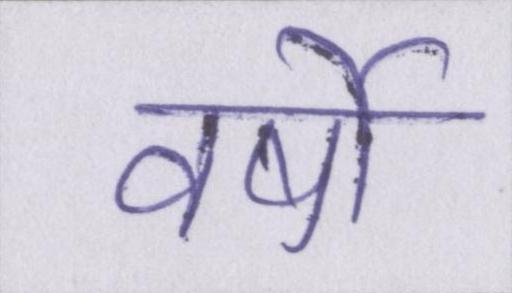 वर्षो